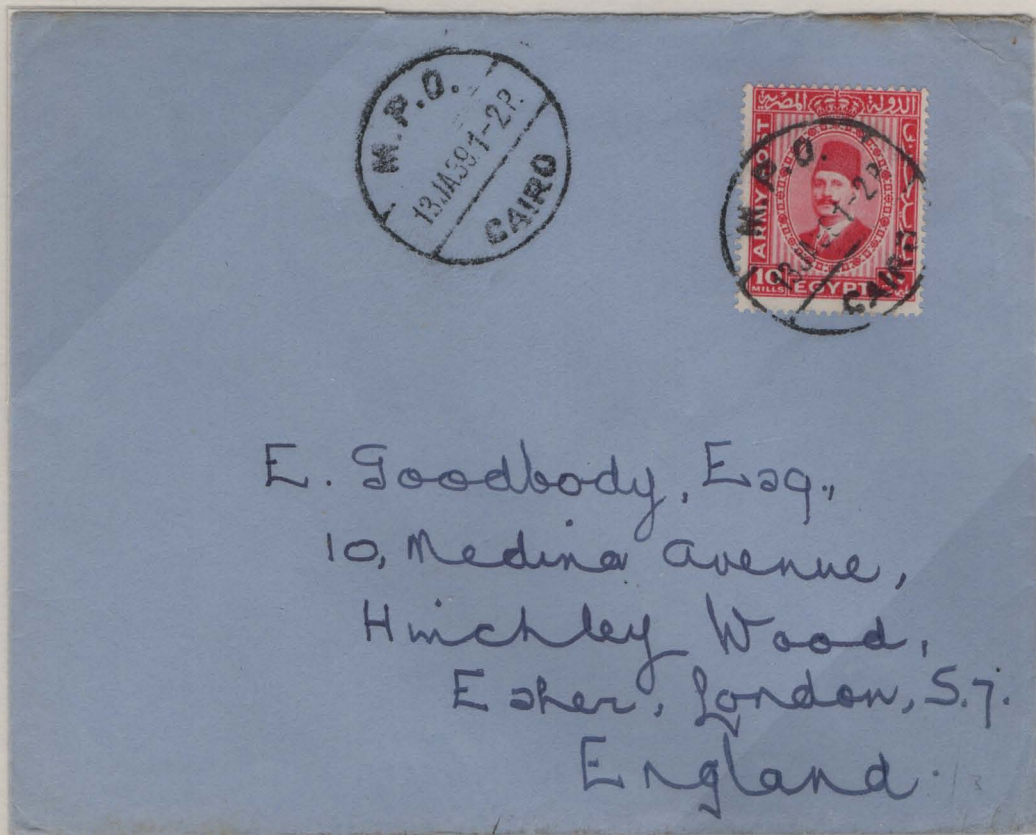 M.P.O.
13 JA 39 1-2 P.
CAIRO
الدولة المصرية
ARMY POST
10
MILLS
EGYPT
M.P.O.
1-2 P.
CAIRO
E. Goodbody, Esq.,
10, Medina Avenue,
Hinchley Wood,
Esher, London, S.7.
England.